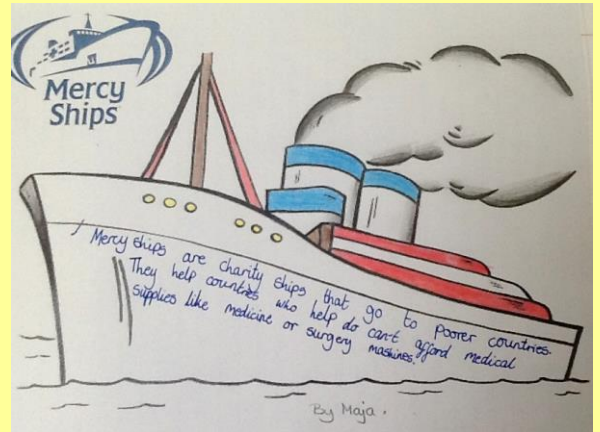 Mercy
Ships
Mercy ships are charity ships that go to poorer countries.
They help countries who help do can't afford medical
supplies like medicine or surgery mashines.
By Maja.